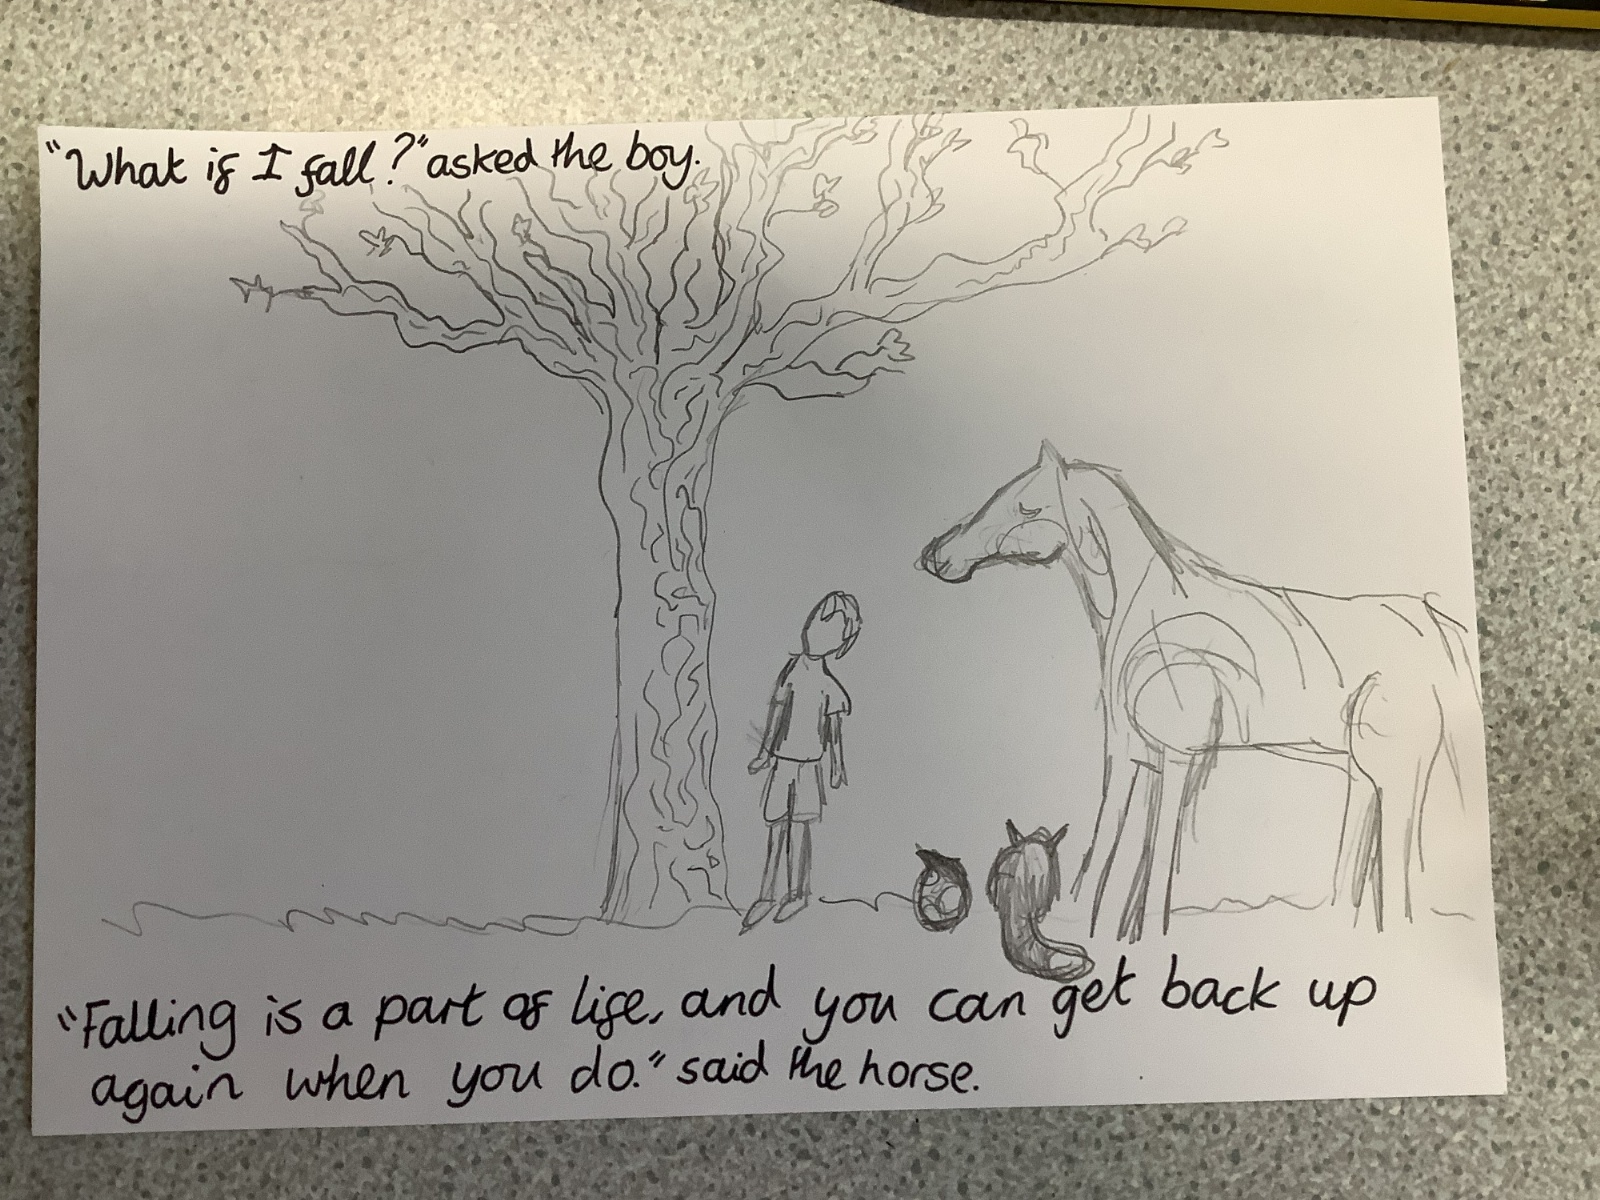 "What if I fall?" asked the boy.
"Falling is a part of life, and you can get back up
again when you do." said the horse.